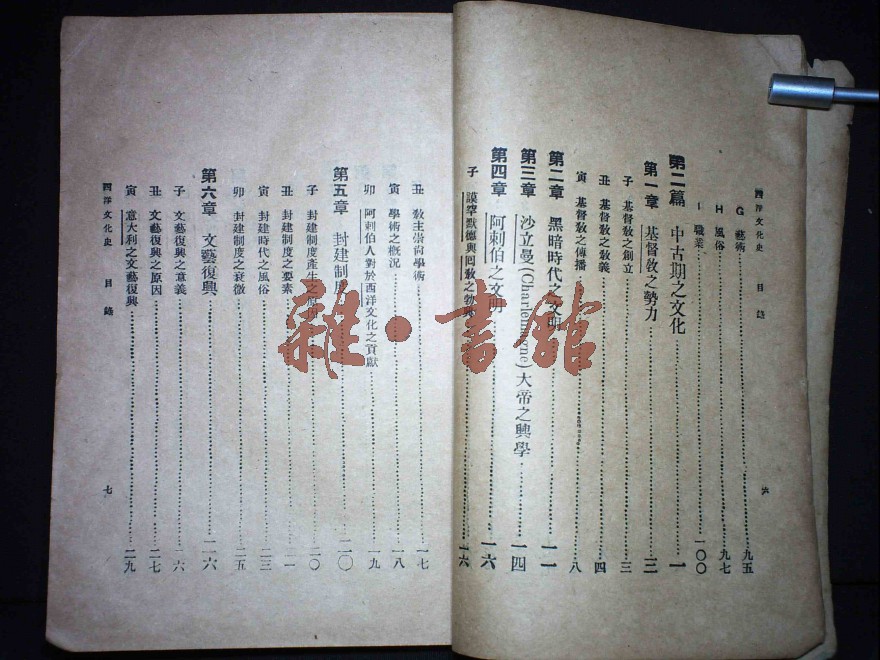 西洋文化史 目錄 六
G 藝術 九五
H 風俗 九七
I 職業 一〇〇
第二篇 中古期之文化 一
第一章 基督敎之勢力 三
子 基督敎之創立 三
丑 基督敎之敎義 四
寅 基督敎之傳播 八
第二章 黑暗時代之文明 一一
第三章 沙立曼(Charlemagne)大帝之興學 一四
第四章 阿剌伯之文明 一六
子 謨罕默德與回敎之勃興 一六
丑 敎主崇尚學術 一七
寅 學術之槪況 一八
卯 阿剌伯人對於西洋文化之貢獻 一九
第五章 封建制度 二〇
子 封建制度產生之原因 二〇
丑 封建制度之要素 二一
寅 封建時代之風俗 二三
卯 封建制度之衰微 二五
第六章 文藝復興 二六
子 文藝復興之意義 二六
丑 文藝復興之原因 二七
寅 意大利之文藝復興 二九
西洋文化史 目錄 七
雜·書館